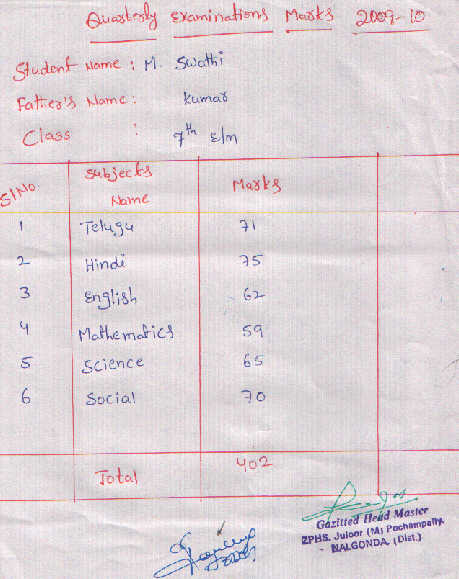 Quarterly Examinations Marks 2009-10
Student Name : M. Swathi
Father's Name : Kumar
Class : 7th E/m
Sl No Subjects Name Marks
1 Telugu 71
2 Hindi 75
3 English 62
4 Mathematics 59
5 Science 65
6 Social 70
Total 402
Gazitted Head Master
ZPHS. Juloor (M) Pochampally.
NALGONDA. (Dist.)